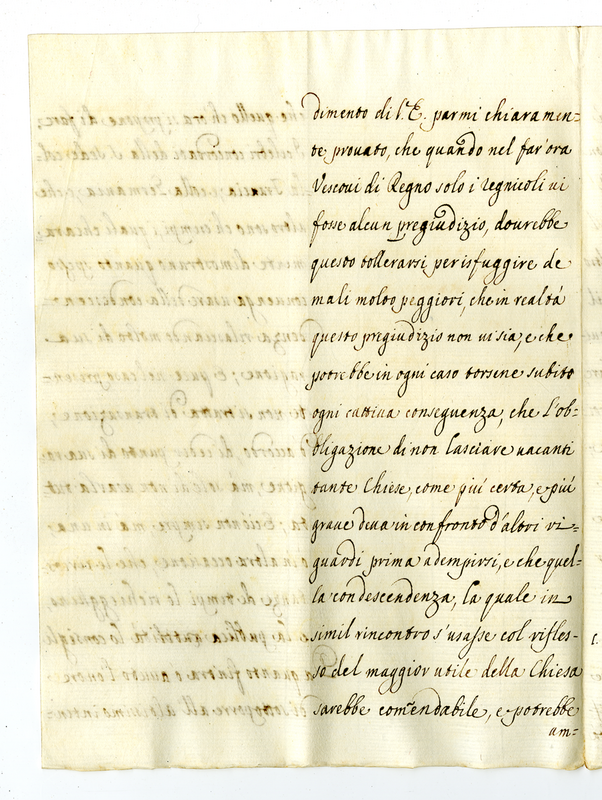 dimento di V. E. parmi chiaramen=
te provato, che quando nel far'ora
Vescovi di Regno solo i regnicoli vi
fosse alcun pregiudizio, dovrebbe
questo tollerarsi per isfuggire de
mali molto peggiori, che in realtà
questo pregiudizio non vi sia, e che
potrebbe in ogni caso torsene subito
ogni cattiva conseguenza, che l'ob=
bligazione di non lasciare vacanti
tante Chiese, come più certa, e più
grave deva in confronto d'altri ri=
guardi prima adempirsi, e che quel=
la condescendenza, la quale in
simil rincontro s'usasse col rifles=
so del maggior utile della Chiesa
sarebbe com̃endabile, e potrebbe
am=